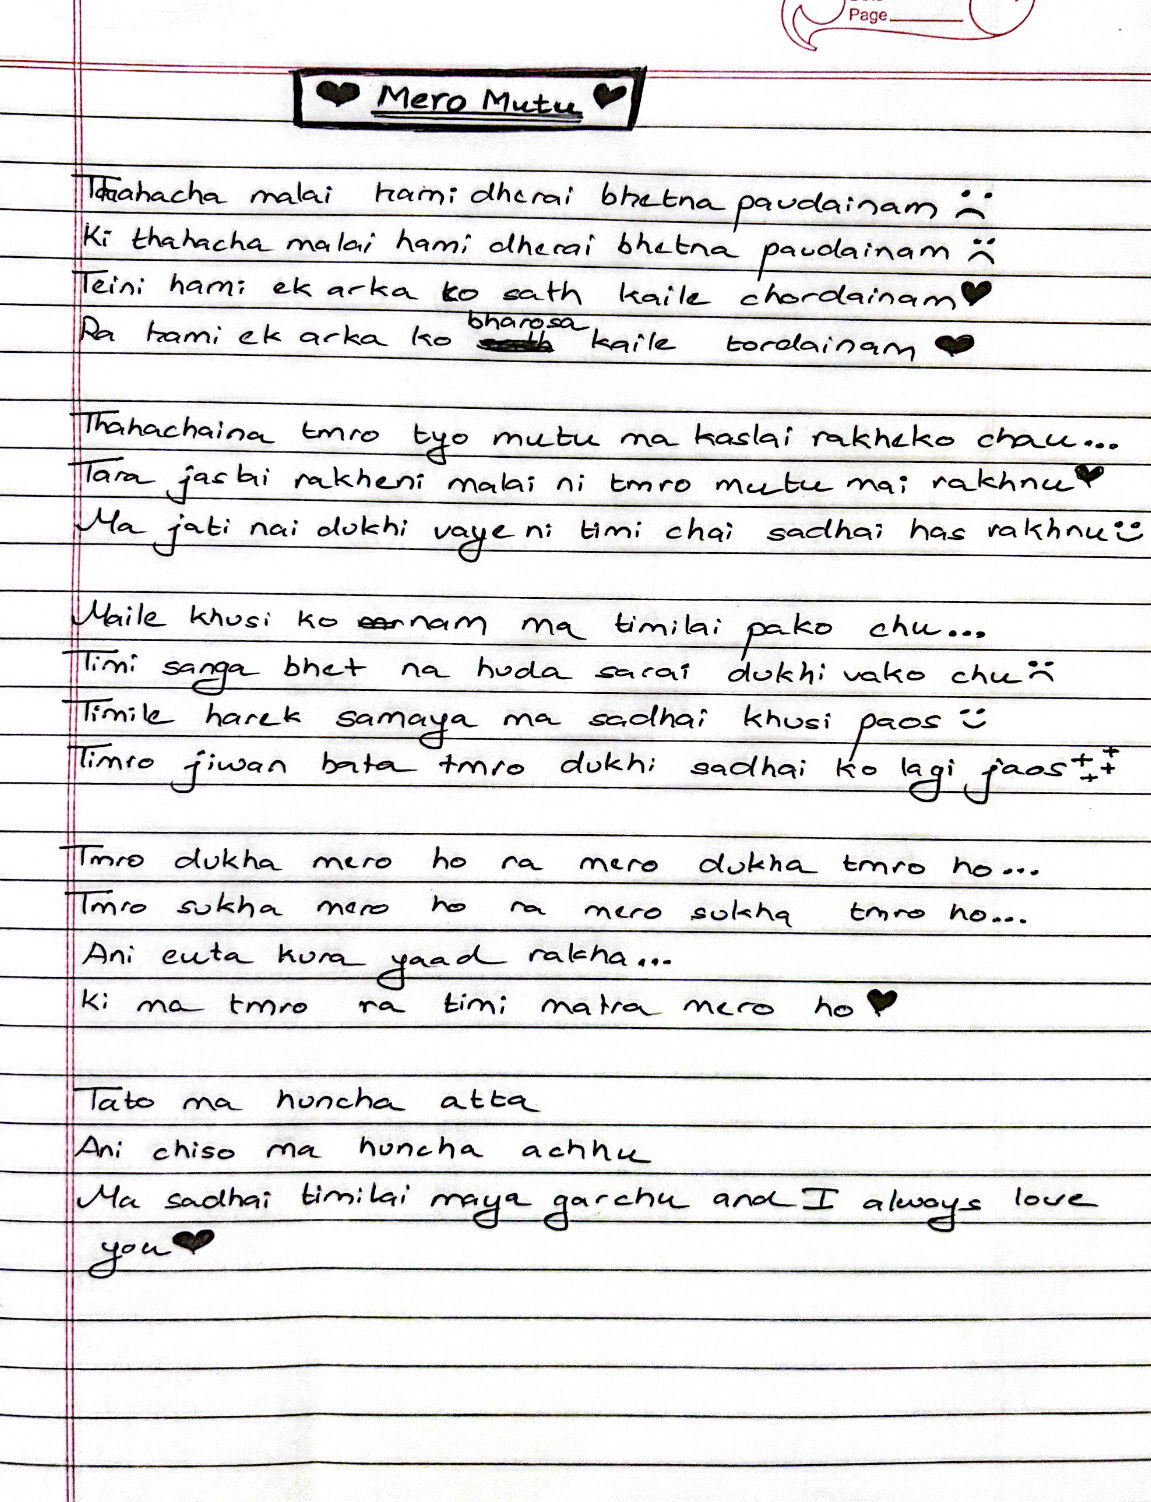 Page
♥ Mero Mutu ♥
Thahacha malai hami dherai bhetna paudainam ☹
Ki thahacha malai hami dherai bhetna paudainam ☹
Teini hami ek arka ko sath kaile chordainam ♥
Ra hami ek arka ko bharosa kaile tordainam ♥
Thahachaina tmro tyo mutu ma kaslai rakheko chau...
Tara jaslai rakheni malai ni tmro mutu mai rakhnu ♥
Ma jati nai dukhi vaye ni timi chai sadhai has rakhnu ☺
Maile khusi ko nam ma timilai pako chu...
Timi sanga bhet na huda sarai dukhi vako chu ☹
Timile harek samaya ma sadhai khusi paos ☺
Timro jiwan bata tmro dukhi sadhai ko lagi jaos
Tmro dukha mero ho ra mero dukha tmro ho...
Tmro sukha mero ho ra mero sukha tmro ho...
Ani euta kura yaad rakha...
Ki ma tmro ra timi matra mero ho ♥
Tato ma huncha atta
Ani chiso ma huncha achhu
Ma sadhai timilai maya garchu and I always love
you ♥